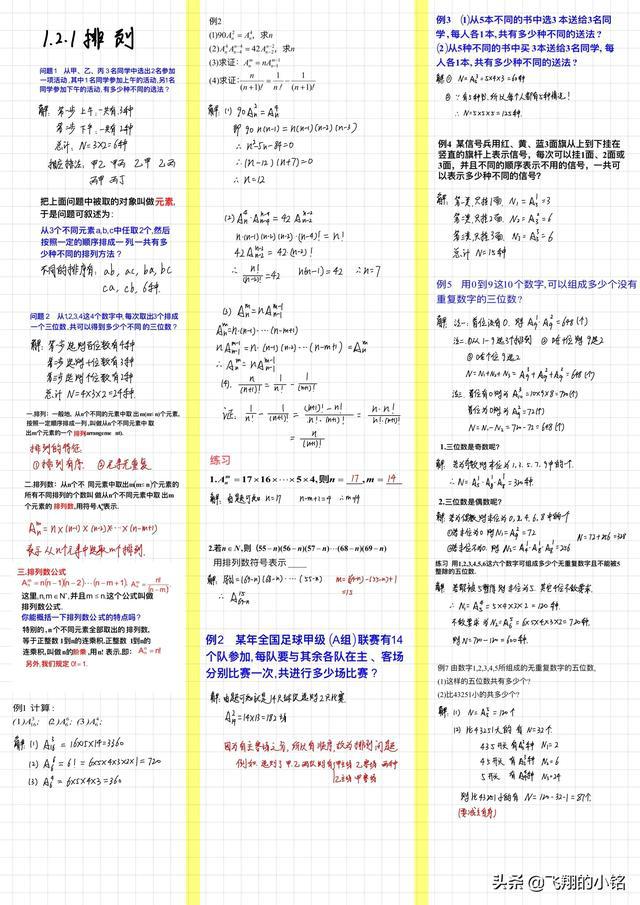 1.2.1 排列
问题1 从甲、乙、丙3名同学中选出2名参加
一项活动,其中1名同学参加上午的活动,另1名
同学参加下午的活动,有多少种不同的选法?
解: 第一步 上午: 一共有3种
第二步 下午: 一共有2种
总计: N=3×2=6种
甲乙 甲丙 乙甲 乙丙
丙甲 丙乙
把上面问题中被取的对象叫做元素,
于是问题可叙述为:
从3个不同元素a,b,c中任取2个,然后
按照一定的顺序排成一列,一共有多
少种不同的排列方法?
不同的排序有: ab, ac, ba, bc
ca, cb, 6种.
问题2 从1,2,3,4这4个数字中,每次取出3个排成
一个三位数,共可以得到多少个不同的三位数?
解: 第一步 选则百位数有4种
第二步 选则十位数有3种
第三步 选则个位数有2种
总计 N=4×3×2=24种.
一.排列: 一般地, 从n个不同的元素中取出m(m≤n)个元素,
按照一定顺序排成一列,叫做从n个不同元素中取
出m个元素的一个排列(arrangement).
排列的特征
①排列有序 ②元素无重复
二.排列数: 从n个不同元素中取出m(m≤n)个元素的
所有不同排列的个数叫做从n个不同元素中取出m
个元素的排列数,用符号Aₙᵐ表示.
Aₙᵐ=n×(n-1)×(n-2)×…×(n-m+1)
表示从n个元素中选取m个排列.
三.排列数公式
Aₙᵐ=n(n-1)(n-2)⋯(n-m+1). Aₙᵐ=n!/(n-m)!
这里,n,m∈N*,并且m≤n.这个公式叫做
排列数公式.
你能概括一下排列数公式的特点吗?
特别的, n个不同元素全部取出的排列数,
等于正整数1到n的连乘积,正整数1到n的
连乘积,叫做n的阶乘,用n!表示,即: Aₙⁿ=n!
另外,我们规定0!=1.
例1 计算:
(1)A₁₆³; (2)A₆⁶; (3)A₆⁴;
解: (1) A₁₆³=16×15×14=3360
(2) A₆⁶=6!=6×5×4×3×2×1=720
(3) A₆⁴=6×5×4×3=360
例2
(1)90Aₙ²=Aₙ⁴, 求n
(2)Aₙ⁴Aₙ₋₄ⁿ⁻⁴=42Aₙ₋₂ⁿ⁻², 求n
(3)求证: Aₙᵐ=nAₙ₋₁ᵐ⁻¹
(4)求证: n/(n+1)!=1/n!-1/(n+1)!
解: (1) 90Aₙ²=Aₙ⁴
即 90n(n-1)=n(n-1)(n-2)(n-3)
∴ n²-5n-84=0
∴ (n-12)(n+7)=0
∴ n=12
(2) Aₙ⁴·Aₙ₋₄ⁿ⁻⁴=42Aₙ₋₂ⁿ⁻²
n·(n-1)(n-2)(n-3)·(n-4)!=n!
42Aₙ₋₂ⁿ⁻²=42·(n-2)!
∴ n!/(n-2)!=42 n(n-1)=42 ∴n=7
(3) Aₙᵐ=nAₙ₋₁ᵐ⁻¹
Aₙᵐ=n·(n-1)…(n-m+1)
nAₙ₋₁ᵐ⁻¹=n·(n-1)(n-2)…(n-m+1)=Aₙᵐ
∴ Aₙᵐ=nAₙ₋₁ᵐ⁻¹
(4). n/(n+1)!=1/n!-1/(n+1)!
证: 1/n!-1/(n+1)!=((n+1)!-n!)/(n!·(n+1)!)=n·n!/(n!·(n+1)!)
=n/(n+1)!
练习
1.Aₙᵐ=17×16×⋯×5×4,则n=17,m=14
解: 由题可知 n=17 n-m+1=4 ∴m=14
2.若n∈N,则 (55-n)(56-n)(57-n)⋯(68-n)(69-n)
用排列数符号表示____
解: 原式=(69-n)(68-n)…(55-n) m=(69-n)-(55-n)+1
=15
∴A₆₉₋ₙ¹⁵
例2 某年全国足球甲级(A组)联赛有14
个队参加,每队要与其余各队在主、客场
分别比赛一次,共进行多少场比赛?
解: 由题可知就是14只球队选则2只比赛
A₁₄²=14×13=182场
因为有主客场之分,所以有顺序,故为排列问题
例如 选到了甲乙两队则有 甲主场 乙客场 两种
乙主场 甲客场
例3 (1)从5本不同的书中选3本送给3名同
学,每人各1本,共有多少种不同的送法?
(2)从5种不同的书中买3本送给3名同学,每
人各1本,共有多少种不同的送法?
解① N=A₅³=5×4×3=60种
② ∵有5种书,所以每个人都有5种情况!
∴ N=5×5×5=125种.
例4 某信号兵用红、黄、蓝3面旗从上到下挂在
竖直的旗杆上表示信号, 每次可以挂1面、2面或
3面,并且不同的顺序表示不用的信号,一共可
以表示多少种不同的信号?
解: 第一类,只挂1面, N₁=A₃¹=3
第二类,只挂2面, N₂=A₃²=6
第三类,只挂3面, N₃=A₃³=6
总计 N=15种
例5 用0到9这10个数字,可以组成多少个没有
重复数字的三位数?
解: 法一: 首位没有0. 则 A₉¹·A₉²=648(个)
N=N₁+N₂+N₃=A₉³+A₉²+A₉²=648(个)
首位为0则为A₉²=72(个)
∴ N=N₁-N₂=720-72=648(个)
1.三位数是奇数呢?
解: 若为奇数则末位为1,3,5,7,9中的一个.
∴ N=A₅¹·A₈¹·A₈¹=320种
2.三位数是偶数呢?
解: 若为偶数,则末位为0,2,4,6,8中的一个
①若末位为0则A₉²=72
②若末位不为0. 则A₄¹·A₈¹·A₈¹=256
N=72+256=328
练习 用1,2,3,4,5,6这六个数字可组成多少个无重复数字且不能被5
整除的五位数.
解: 若能被5整除则末位为5. 其他4位不做要求.
∴ N₁=A₅⁴=5×4×3×2=120种.
不做要求为N₂=A₆⁵=6×5×4×3×2=720种.
则 N=720-120=600种.
例7 由数字1,2,3,4,5所组成的无重复数字的五位数,
(1)这样的五位数共有多少个?
(2)比43251小的共多少个?
解: (1) N=A₅⁵=120个
(2) 比43251大的有 N=32个
435开头 有A₂²种 N₁=2
45开头 有A₃³种 N₂=6
5开头 有A₄⁴种 N₃=24
则比43251小的有 N=120-32-1=87个.
(要减去自身)
头条 @飞翔的小铭